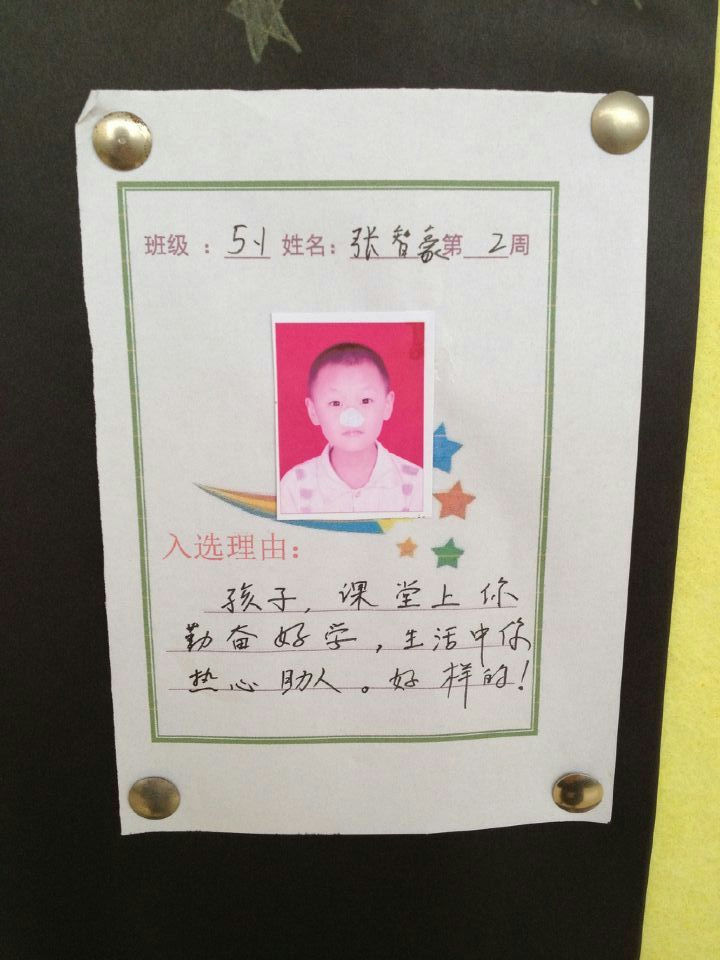 班级：5-1 姓名：张智豪第2周
入选理由：
孩子，课堂上你
勤奋好学，生活中你
热心助人。好样的！